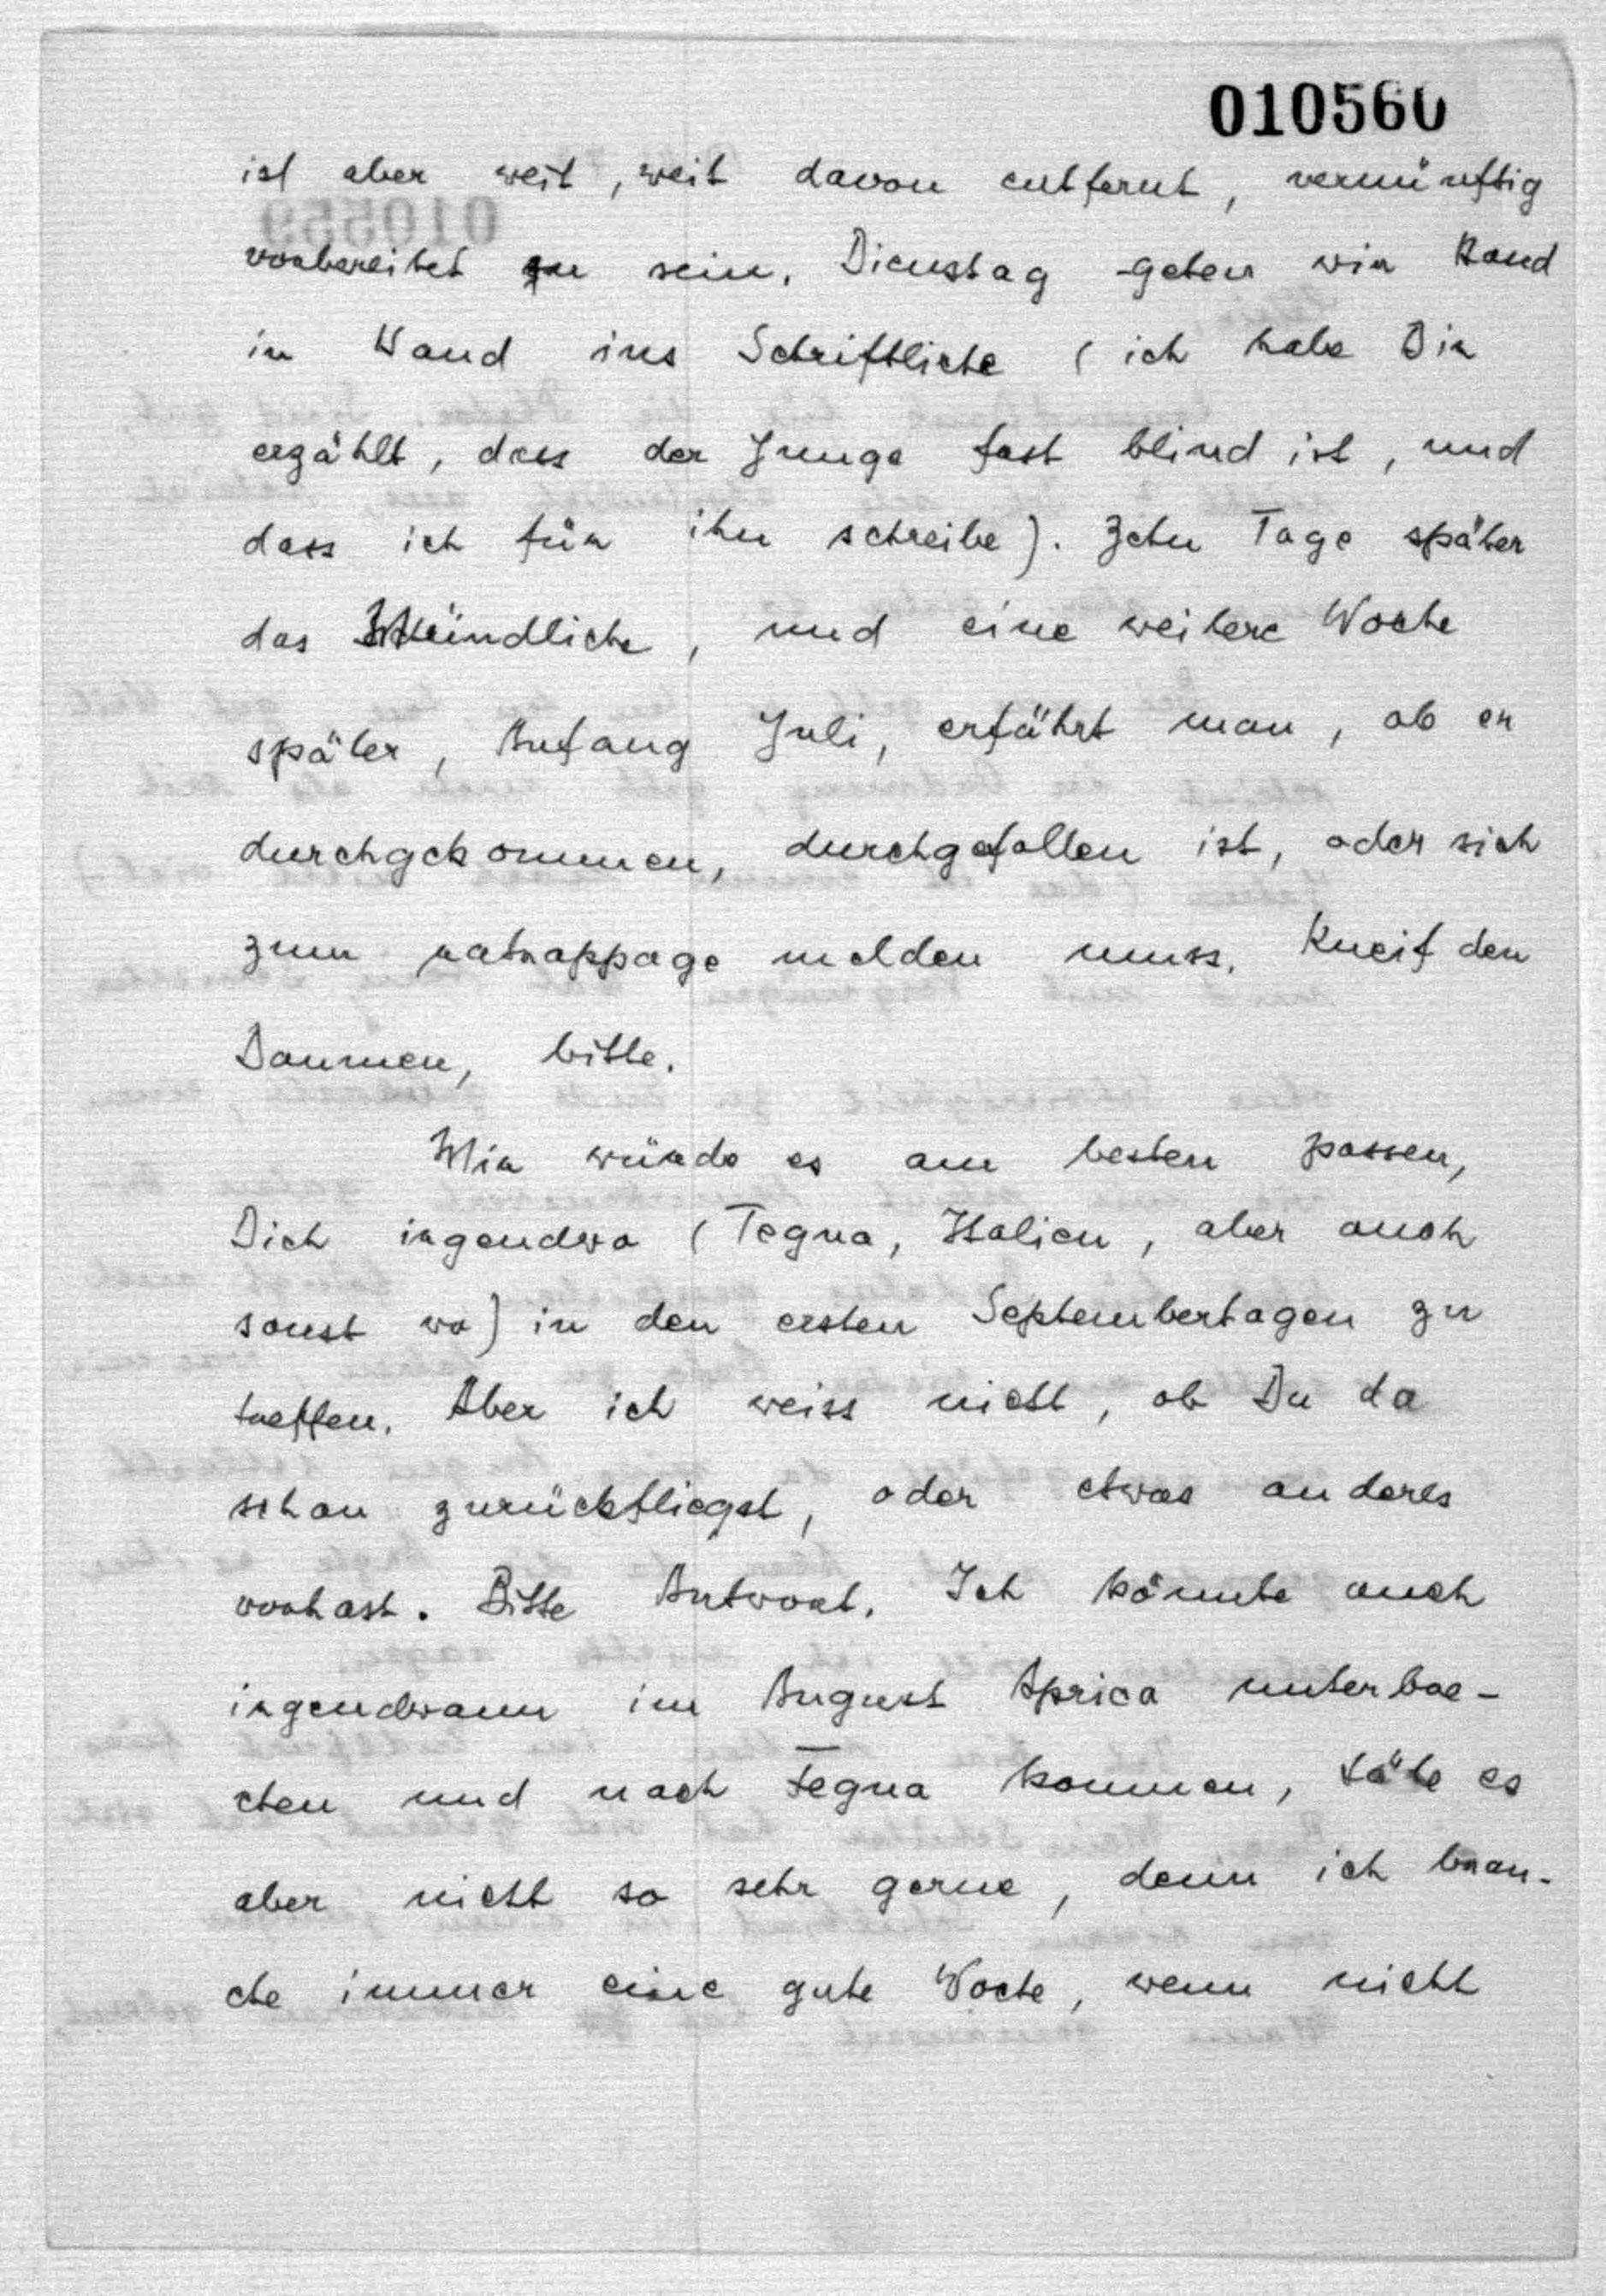 010560
ist aber weit, weit davon entfernt, vernünftig
vorbereitet zu sein. Dienstag gehen wir Hand
in Hand ins Schriftliche (ich habe Dir
erzählt, dass der Junge fast blind ist, und
dass ich für ihn schreibe). Zehn Tage später
das Mündliche, und eine weitere Woche
später, Anfang Juli, erfährt man, ob er
durchgekommen, durchgefallen ist, oder sich
zum ratrappage melden muss. Kneif den
Daumen, bitte.
Mir würde es am besten passen,
Dich irgendwo (Tegna, Italien, aber auch
sonst wo) in den ersten Septembertagen zu
treffen. Aber ich weiss nicht, ob Du da
schon zurückfliegst, oder etwas anderes
vorhast. Bitte Antwort. Ich könnte auch
irgendwann im August Aprica unterbre-
chen und nach Tegna kommen, täte es
aber nicht so sehr gerne, denn ich brau-
che immer eine gute Woche, wenn nicht